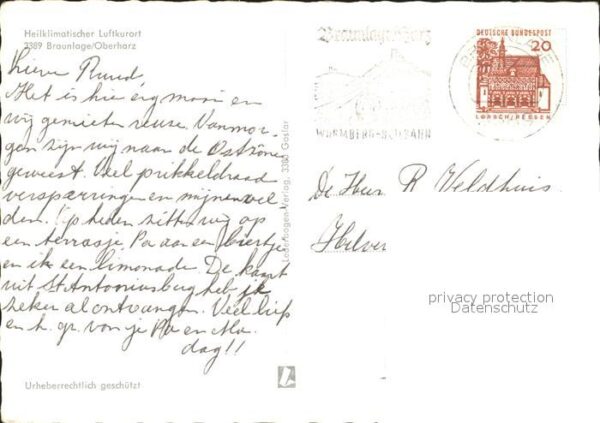 Heilklimatischer Luftkurort
3389 Braunlage/Oberharz
Lieve Ruud
Het is hier erg mooi en
wij genieten reuze. Vanmor-
gen zijn wij naar de Ostzône
geweest. Veel prikkeldraad
versparringen en mijnenvel
den. Op heden zitten wij op
een terrasje, Pa aan een biertje
en ik een limonade. De kaart
uit St Antoniusburg heb je
zeker al ontvangen. Veel liefs
en h. gr. van je Pa en Ma.
dag!!
Urheberrechtlich geschützt
Verlag, 3380 Goslar
Braunlage/Harz
WURMBERG-SEILBAHN
DEUTSCHE BUNDESPOST
20
LORSCH/HESSEN
De Heer R Veldhuis
Hilver
privacy protection
Datenschutz